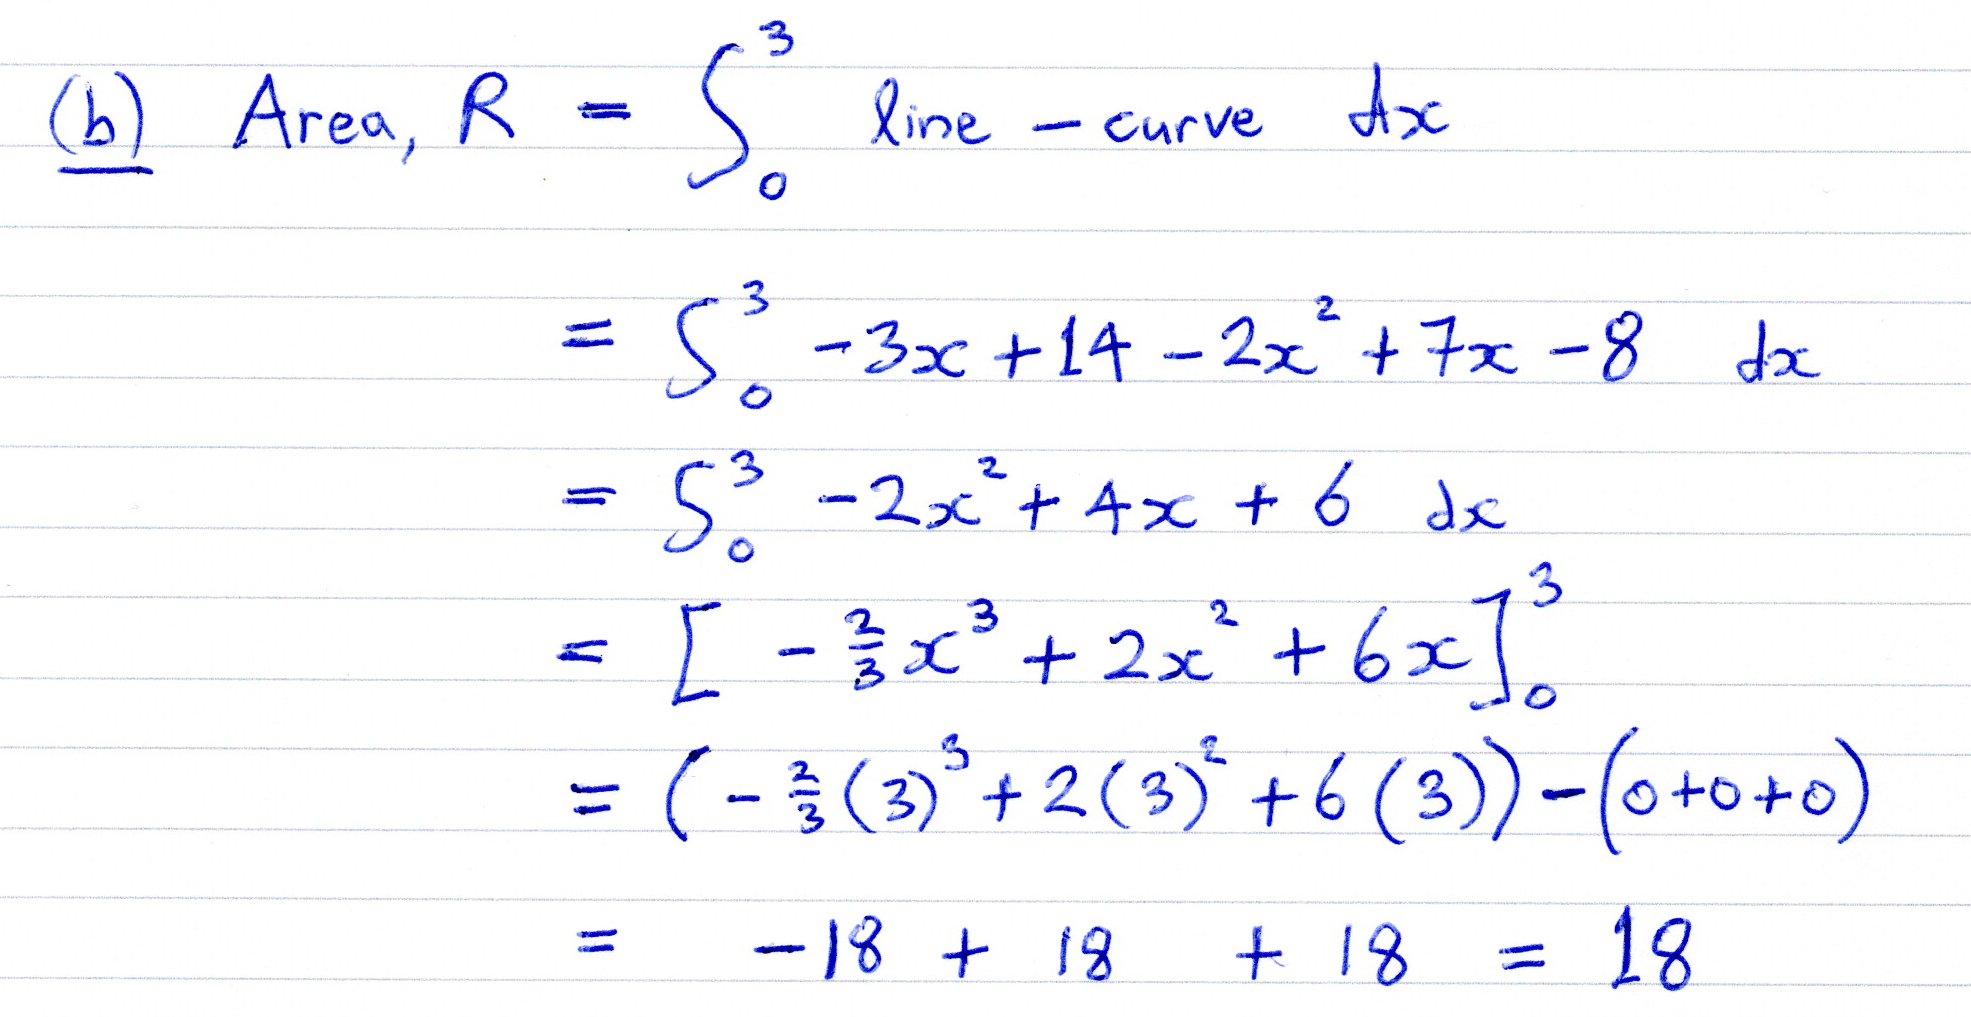 (b) Area, R = ∫₀³ line - curve dx
= ∫₀³ -3x + 14 - 2x² + 7x - 8 dx
= ∫₀³ -2x² + 4x + 6 dx
= [ -⅔x³ + 2x² + 6x ]₀³
= ( -⅔(3)³ + 2(3)² + 6(3)) - (0+0+0)
= -18 + 18 + 18 = 18